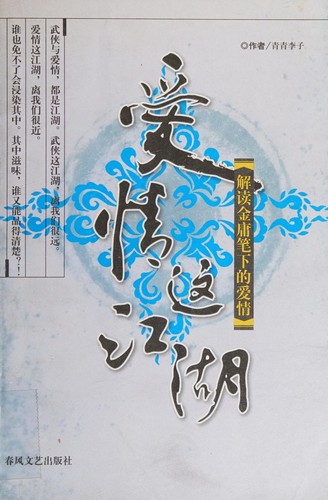 ◎作者/青青李子
武侠与爱情，都是江湖。武侠这江湖，离我们很远。
爱情这江湖，离我们很近。
谁也免不了会浸染其中。其中滋味，谁又能品得清楚？！
爱情这江湖
解读金庸笔下的爱情
春风文艺出版社